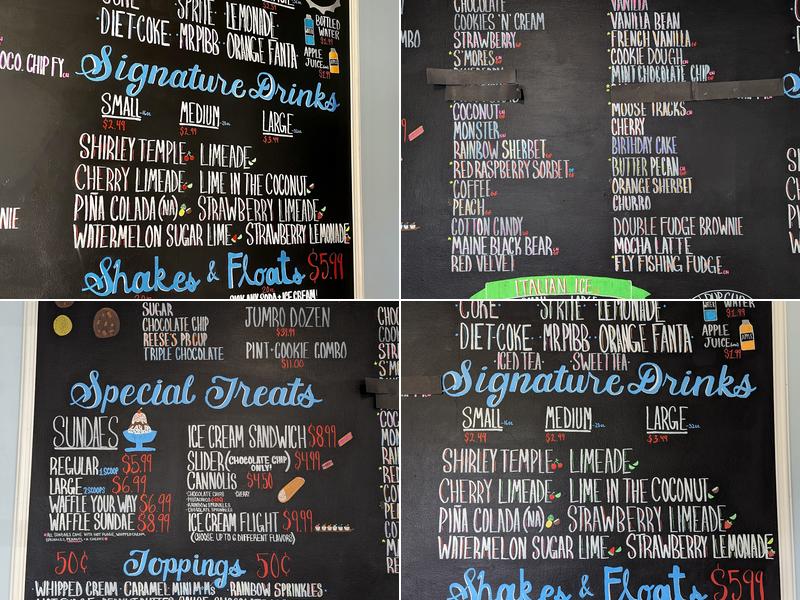 COKE SPRITE LEMONADE
DIET COKE · MR PIBB · ORANGE FANTA
BOTTLED WATER
$1.99
APPLE JUICE
$1.99
OCO. CHIP FY.
Signature Drinks
SMALL MEDIUM LARGE
$2.49 $2.99 $3.49
SHIRLEY TEMPLE LIMEADE
CHERRY LIMEADE LIME IN THE COCONUT
PIÑA COLADA (NA) STRAWBERRY LIMEADE
WATERMELON SUGAR LIME STRAWBERRY LEMONADE
NIE
Shakes & Floats $5.99
CHOCOLATE
COOKIES 'N' CREAM
STRAWBERRY
S'MORES
COCONUT
MONSTER
RAINBOW SHERBET
RED RASPBERRY SORBET
COFFEE
PEACH
COTTON CANDY
MAINE BLACK BEAR
RED VELVET
VANILLA
VANILLA BEAN
FRENCH VANILLA
COOKIE DOUGH
MINT CHOCOLATE CHIP
MOOSE TRACKS
CHERRY
BIRTHDAY CAKE
BUTTER PECAN
ORANGE SHERBET
CHURRO
DOUBLE FUDGE BROWNIE
MOCHA LATTE
FLY FISHING FUDGE
MBO
ITALIAN ICE
SUGAR
CHOCOLATE CHIP
REESE'S PB CUP
TRIPLE CHOCOLATE
JUMBO DOZEN
$31.99
PINT · COOKIE COMBO
$11.00
Special Treats
SUNDAES
REGULAR 1 SCOOP $5.99
LARGE 2 SCOOPS $6.99
WAFFLE YOUR WAY $6.99
WAFFLE SUNDAE $8.99
*ALL SUNDAES COME WITH HOT FUDGE, WHIPPED CREAM,
SPRINKLES, PEANUTS, & A CHERRY
ICE CREAM SANDWICH $8.99
SLIDER (CHOCOLATE CHIP ONLY!) $4.99
CANNOLIS $4.50
ICE CREAM FLIGHT $9.99
(CHOOSE UP TO 6 DIFFERENT FLAVORS)
50¢ Toppings 50¢
WHIPPED CREAM · CARAMEL MINI M·Ms · RAINBOW SPRINKLES ·
COKE SPRITE LEMONADE
DIET COKE · MR PIBB · ORANGE FANTA
ICED TEA · SWEET TEA
WATER
$1.99
APPLE JUICE
$1.99
Signature Drinks
SMALL MEDIUM LARGE
$2.49 $2.99 $3.49
SHIRLEY TEMPLE LIMEADE
CHERRY LIMEADE LIME IN THE COCONUT
PIÑA COLADA (NA) STRAWBERRY LIMEADE
WATERMELON SUGAR LIME STRAWBERRY LEMONADE
Shakes & Floats $5.99